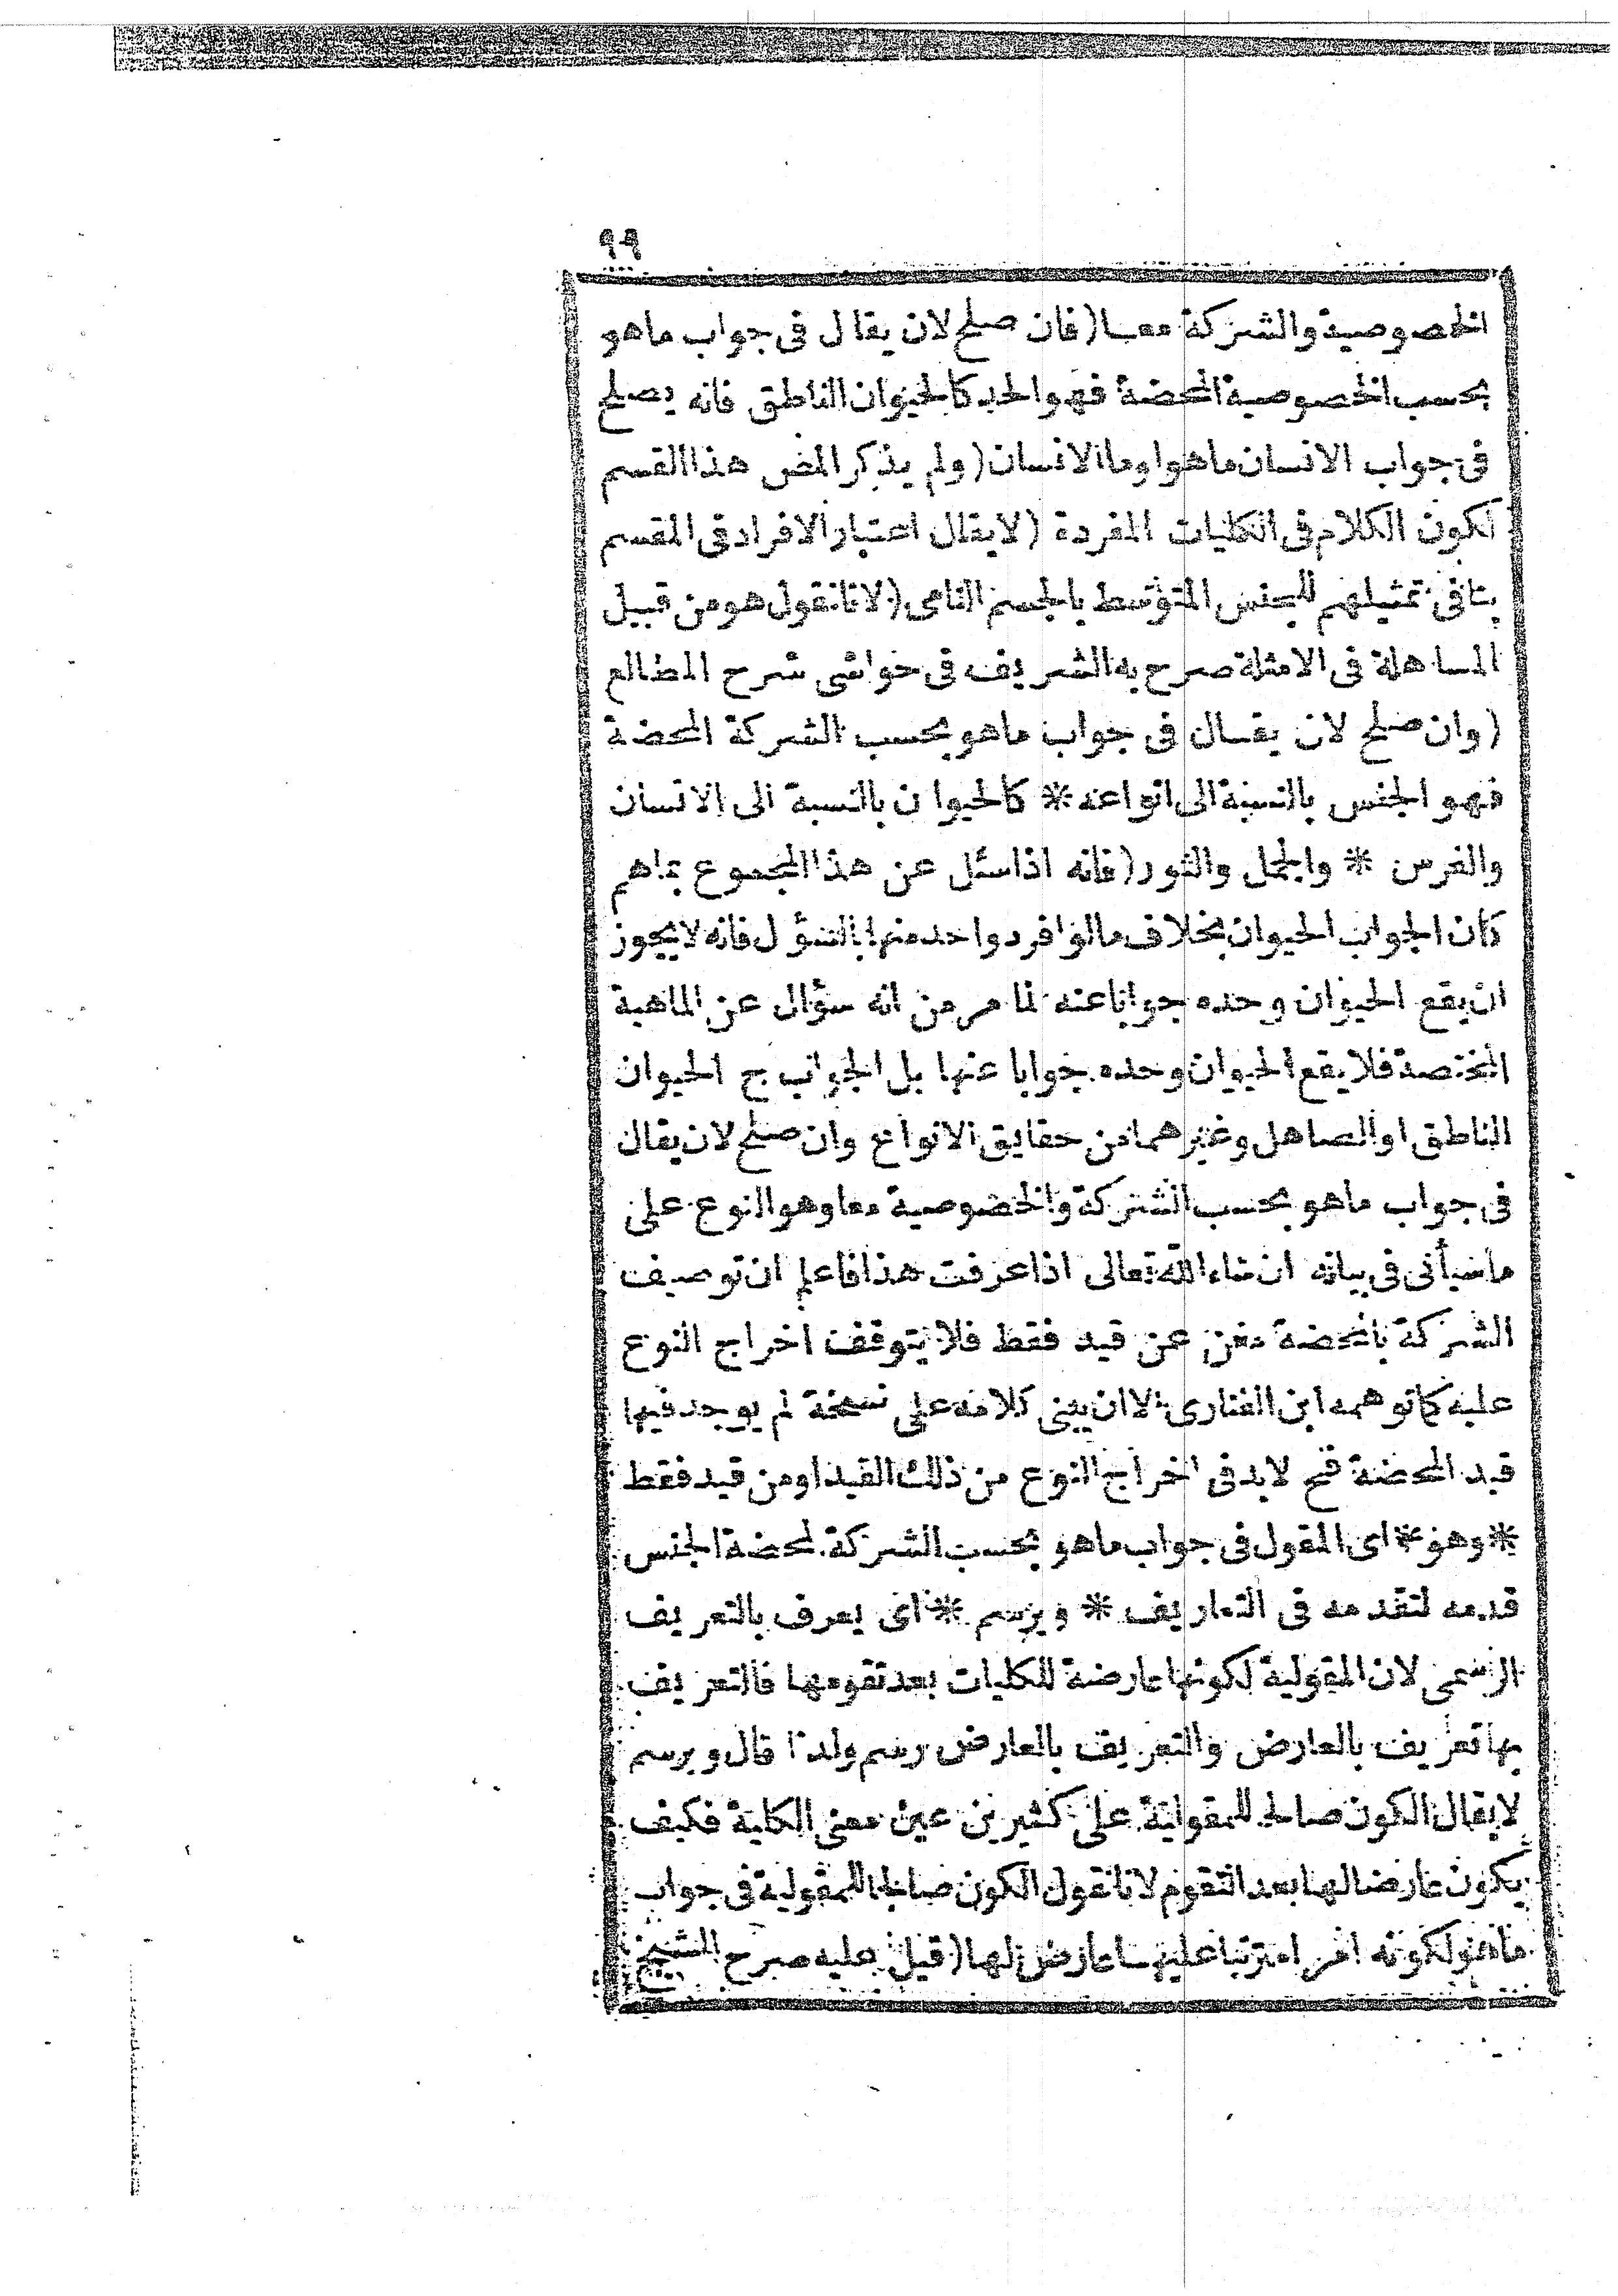 ٩٩
الخصوصية والشركة معا (فان صلح لان يقال فى جواب ماهو
بحسب الخصوصية المحضة فهو الحد كالحيوان الناطق فانه يصلح
فى جواب الانسان ماهو اوما الانسان (ولم يذكر المص هذا القسم
لكون الكلام فى الكليات المفردة (لايقال اعتبار الافراد فى المقسم
ينافى تمثيلهم للجنس المتوسط بالجسم النامى (لانا نقول هو من قبيل
المساهلة فى الامثلة صرح به الشريف فى حواشى شرح المطالع
(وان صلح لان يقال فى جواب ماهو بحسب الشركة المحضة
فهو الجنس بالنسبة الى انواعه * كالحيوان بالنسبة الى الانسان
والفرس * والجمل والثور (فانه اذا سئل عن هذا المجموع بماهم
كان الجواب الحيوان بخلاف مالو افرد واحد منها بالسؤل فانه لايجوز
ان يقع الحيوان وحده جوابا عنه لما مر من انه سؤال عن الماهية
المختصة فلا يقع الحيوان وحده جوابا عنها بل الجواب ح الحيوان
الناطق او الصاهل وغيرهما من حقايق الانواع وان صلح لان يقال
فى جواب ماهو بحسب الشركة والخصوصية معا وهو النوع على
ماسيأتى فى بيانه ان شاء الله تعالى اذا عرفت هذا فاعلم ان توصيف
الشركة بالمحضة مغن عن قيد فقط فلا يتوقف اخراج النوع
عليه كما توهمه ابن الفنارى الا ان يبنى كلامه على نسخة لم يوجد فيها
قيد المحضة فح لابد فى اخراج النوع من ذلك القيد او من قيد فقط
* وهو * اى المقول فى جواب ماهو بحسب الشركة لمحضة الجنس
قدمه لتقدمه فى التعاريف * ويرسم * اى يعرف بالتعريف
الرسمى لان المقولية لكونها عارضة للكليات بعد تقومها فالتعريف
بها تعريف بالعارض والتعريف بالعارض رسم ولذا قال ويرسم
لايقال الكون صالحا للمقولية على كثيرين عين معنى الكلية فكيف
يكون عارضا لها بعد التقوم لانا نقول الكون صالحا للمقولية فى جواب
ماهو لكونه امرا مترتبا عليها عارض لها (قيل عليه صرح الشيخ